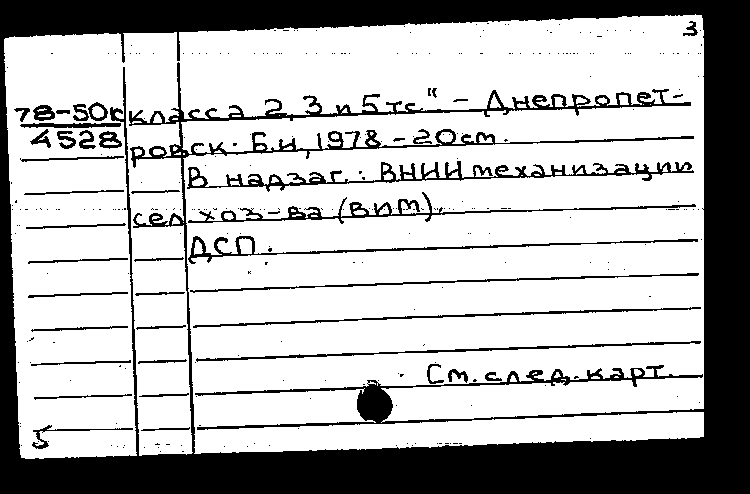 3
78-50к класса 2, 3 и 5 тс" - Днепропет-
4528 ровск: Б.и, 1978. - 20см.
В надзаг.: ВНИИ механизации
сел. хоз-ва (ВИМ).
ДСП.
См. след. карт.
5